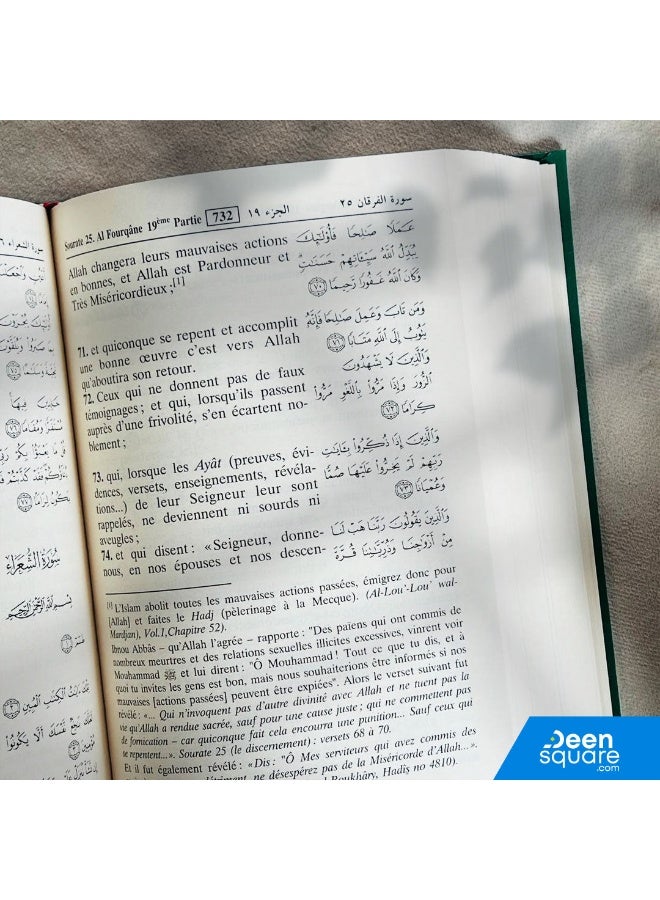 Sourate 25. Al Fourqâne 19ème Partie 732 الجزء ١٩ سورة الفرقان ٢٥
Allah changera leurs mauvaises actions
en bonnes, et Allah est Pardonneur et
Très Miséricordieux ;[1]
71. et quiconque se repent et accomplit
une bonne œuvre c'est vers Allah
qu'aboutira son retour.
72. Ceux qui ne donnent pas de faux
témoignages ; et qui, lorsqu'ils passent
auprès d'une frivolité, s'en écartent no-
blement ;
73. qui, lorsque les Ayât (preuves, évi-
dences, versets, enseignements, révéla-
tions...) de leur Seigneur leur sont
rappelés, ne deviennent ni sourds ni
aveugles ;
74. et qui disent : « Seigneur, donne-
nous, en nos épouses et nos descen-
عَمَلًا صَالِحًا فَأُوْلَٰٓئِكَ
يُبَدِّلُ ٱللَّهُ سَيِّـَٔاتِهِمْ حَسَنَٰتٍ
وَكَانَ ٱللَّهُ غَفُورًا رَّحِيمًا ٧٠
وَمَن تَابَ وَعَمِلَ صَٰلِحًا فَإِنَّهُ
يَتُوبُ إِلَى ٱللَّهِ مَتَابًا ٧١
وَٱلَّذِينَ لَا يَشْهَدُونَ
ٱلزُّورَ وَإِذَا مَرُّواْ بِٱللَّغْوِ مَرُّواْ
كِرَامًا ٧٢
وَٱلَّذِينَ إِذَا ذُكِّرُواْ بِـَٔايَٰتِ
رَبِّهِمْ لَمْ يَخِرُّواْ عَلَيْهَا صُمًّا
وَعُمْيَانًا ٧٣
وَٱلَّذِينَ يَقُولُونَ رَبَّنَا هَبْ لَنَا
مِنْ أَزْوَٰجِنَا وَذُرِّيَّٰتِنَا قُرَّةَ
[1] L'Islam abolit toutes les mauvaises actions passées, émigrez donc pour
[Allah] et faites le Hadj (pèlerinage à la Mecque). (Al-Lou'-Lou' wal-
Mardjan), Vol.1,Chapitre 52).
Ibnou Abbâs – qu'Allah l'agrée – rapporte : "Des païens qui ont commis de
nombreux meurtres et des relations sexuelles illicites excessives, vinrent voir
Mouhammad ﷺ et lui dirent : "Ô Mouhammad ! Tout ce que tu dis, et à
quoi tu invites les gens est bon, mais nous souhaiterions être informés si nos
mauvaises [actions passées] peuvent être expiées". Alors le verset suivant fut
révélé : «... Qui n'invoquent pas d'autre divinité avec Allah et ne tuent pas la
vie qu'Allah a rendue sacrée, sauf pour une cause juste ; qui ne commettent pas
de fornication – car quiconque fait cela encourra une punition... Sauf ceux qui
se repentent...». Sourate 25 (le discernement) : versets 68 à 70.
Et il fut également révélé : «Dis : "Ô Mes serviteurs qui avez commis des
ne désespérez pas de la Miséricorde d'Allah...».
Boukhâry, Hadîs no 4810).
سورة الشعراء
سُورَةُ الشُّعَرَاءِ
بِسْمِ اللَّهِ الرَّحْمَٰنِ الرَّحِيمِ
Deen
square
.com